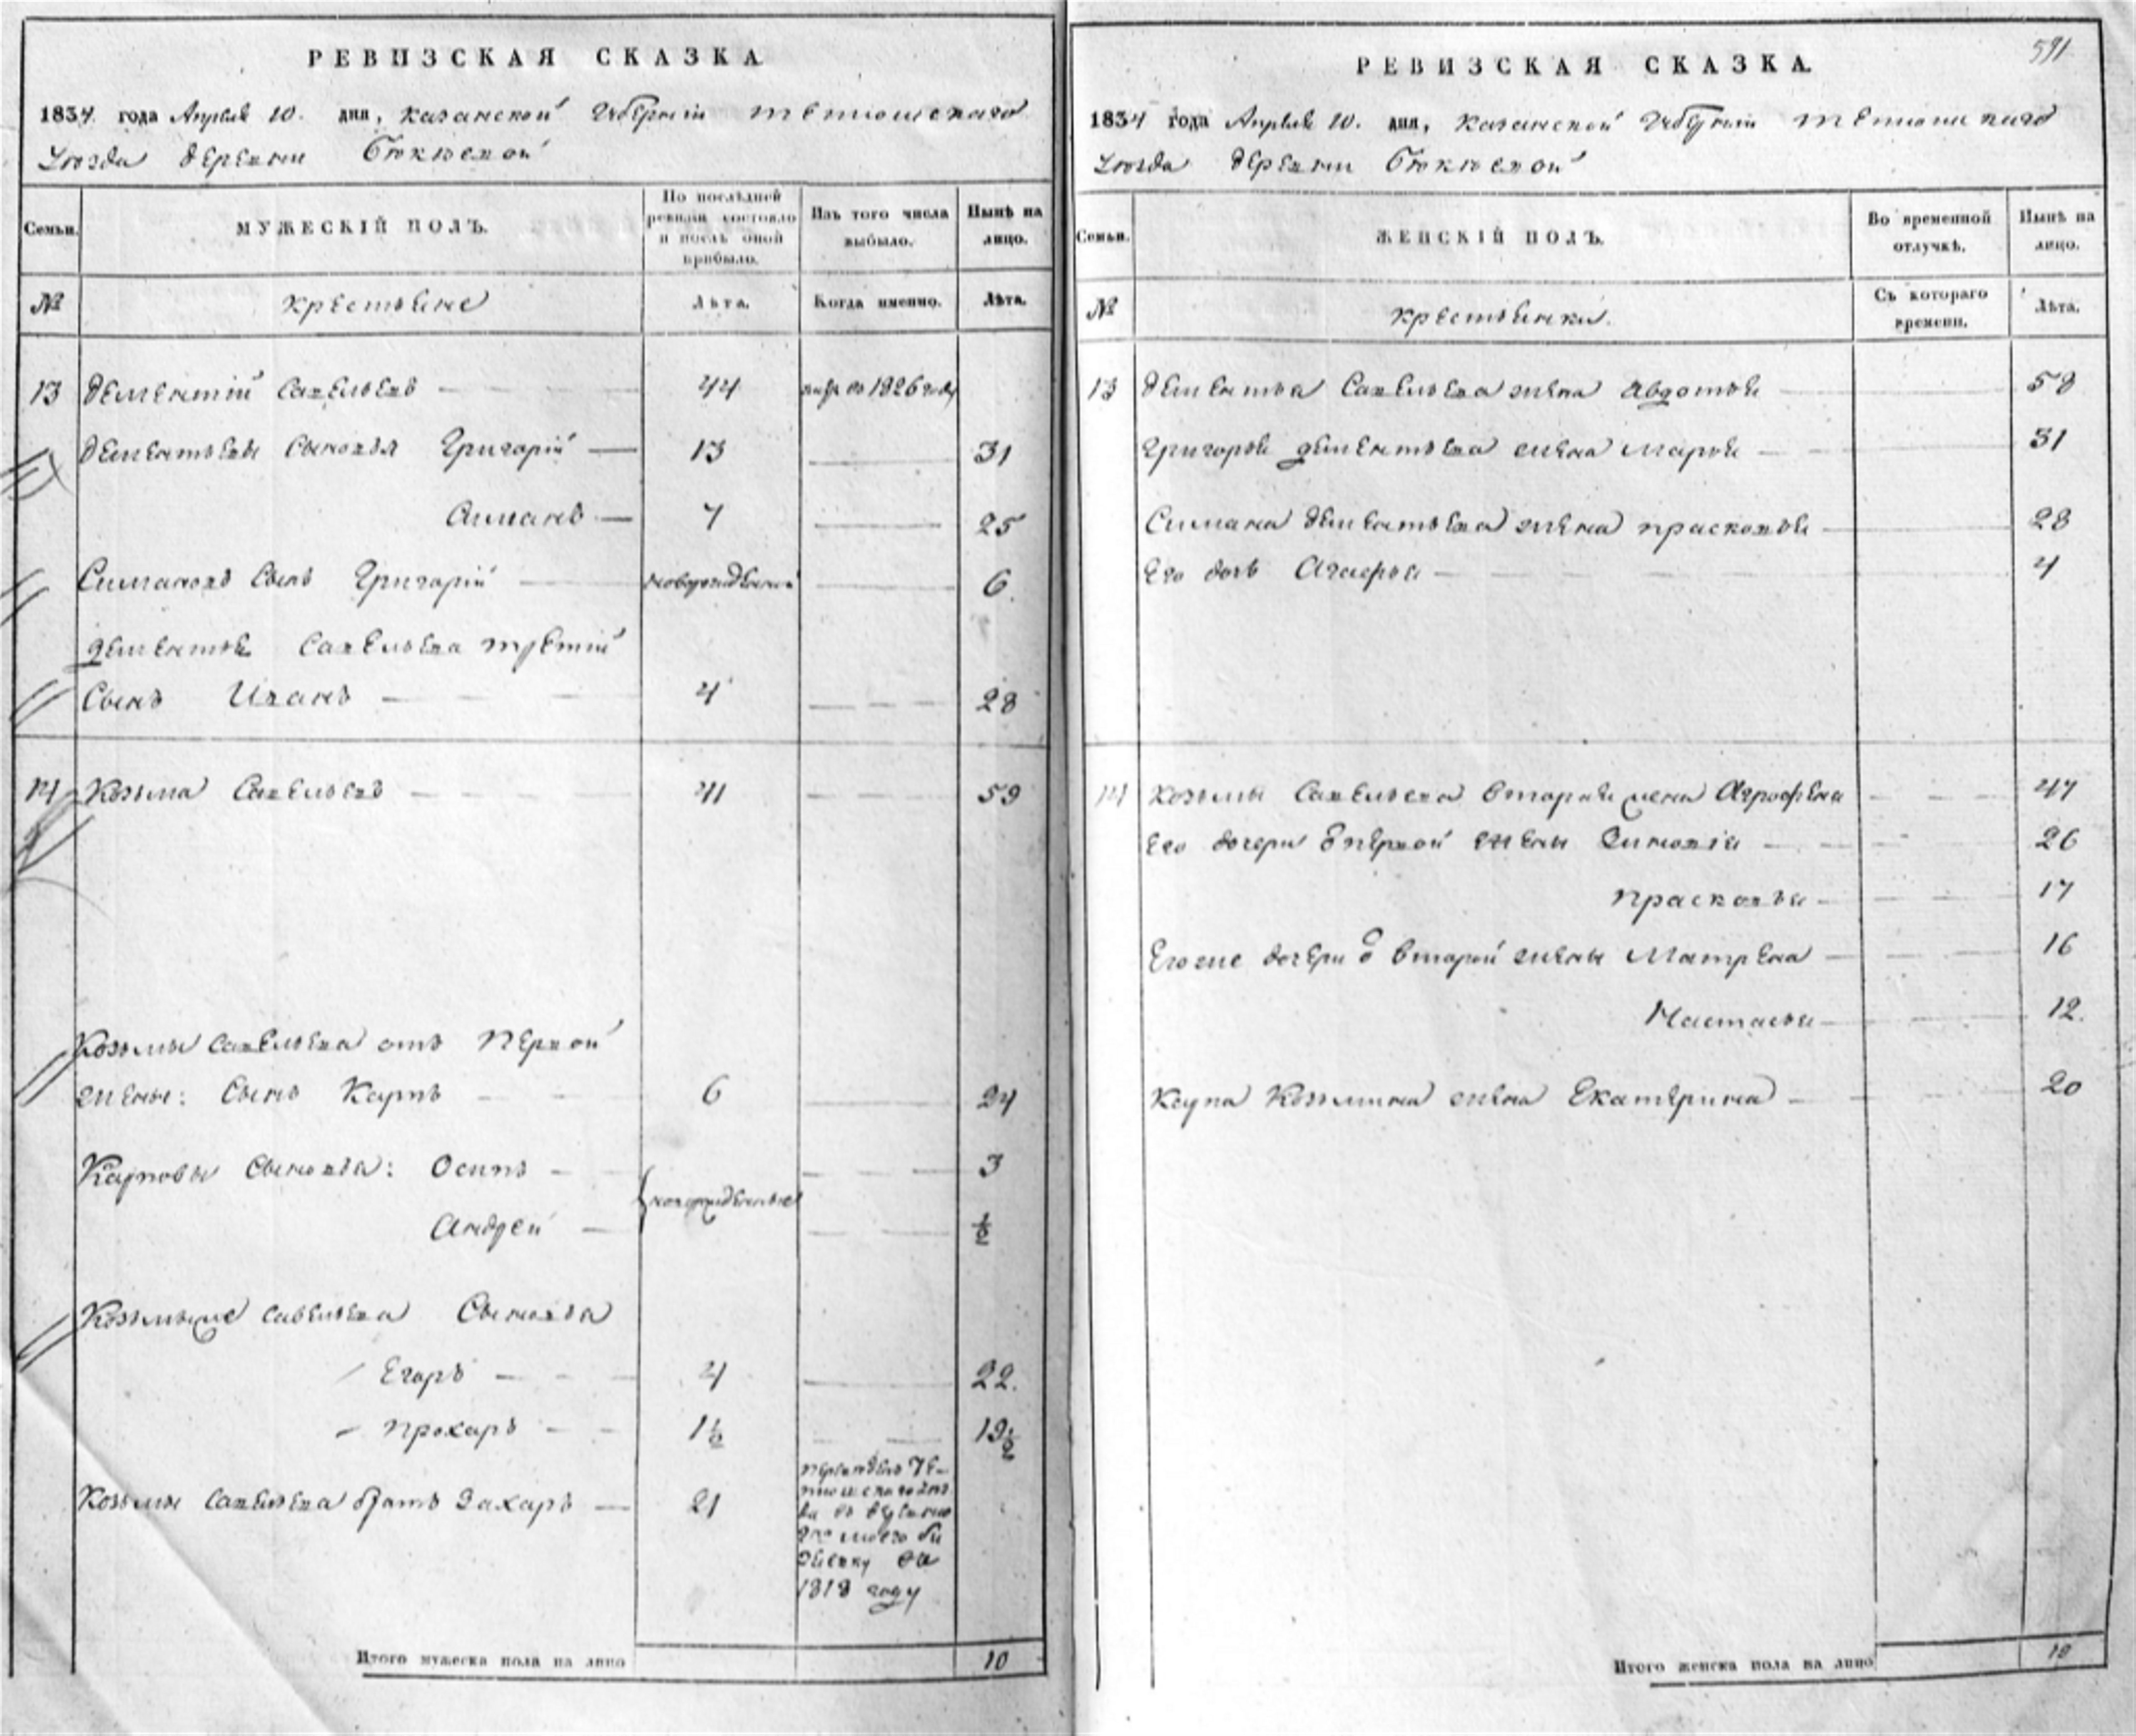 РЕВИЗСКАЯ СКАЗКА
1834 года Апреля 10. дня, Казанской Губерніи Тетюшскаго
Уѣзда деревни
Семьи. МУЖЕСКІЙ ПОЛЪ. По послѣдней ревизіи состояло и послѣ оной прибыло. Изъ того числа выбыло. Нынѣ на лицо.
№ Крестьяне Лѣта. Когда именно. Лѣта.
13 Дементій Савельевъ 44 въ 1826 году
Дементьевы сыновья Григорій 13 31
Симанъ 7 25
Симановъ сынъ Григорій новорожденный 6.
Дементья Савельева третій
сынъ Иванъ 4 28
14 Козьма Савельевъ 41 59
Козьмы Савельева отъ первой
жены: сынъ Карпъ 6 24
Карповы сыновья: Осипъ 3
новорожденные
Андрей ½
Козьмыже Савельева сыновья
Егоръ 4 22.
Прохаръ 1½ 19½
Козьмы Савельева братъ Захаръ 21
1818 году
Итого мужеска пола на лицо 10
591
РЕВИЗСКАЯ СКАЗКА.
1834 года Апреля 10. дня, Казанской Губерніи Тетюшскаго
Уѣзда деревни
Семьи. ЖЕНСКІЙ ПОЛЪ. Во временной отлучкѣ. Нынѣ на лицо.
№ Крестьянки. Съ котораго времени. Лѣта.
13 Дементья Савельева жена Авдотья 58
Григорья Дементьева жена Марья 31
Симана Дементьева жена Прасковья 28
Его дочь 4
14 Козьмы Савельева вторая жена Аграфена 47
Его дочери первой жены Зиновія 26
Прасковья 17
Егоже дочери второй жены Матрена 16
Настасья 12.
Карпа Козьмина жена Екатерина 20
Итого женска пола на лицо 10